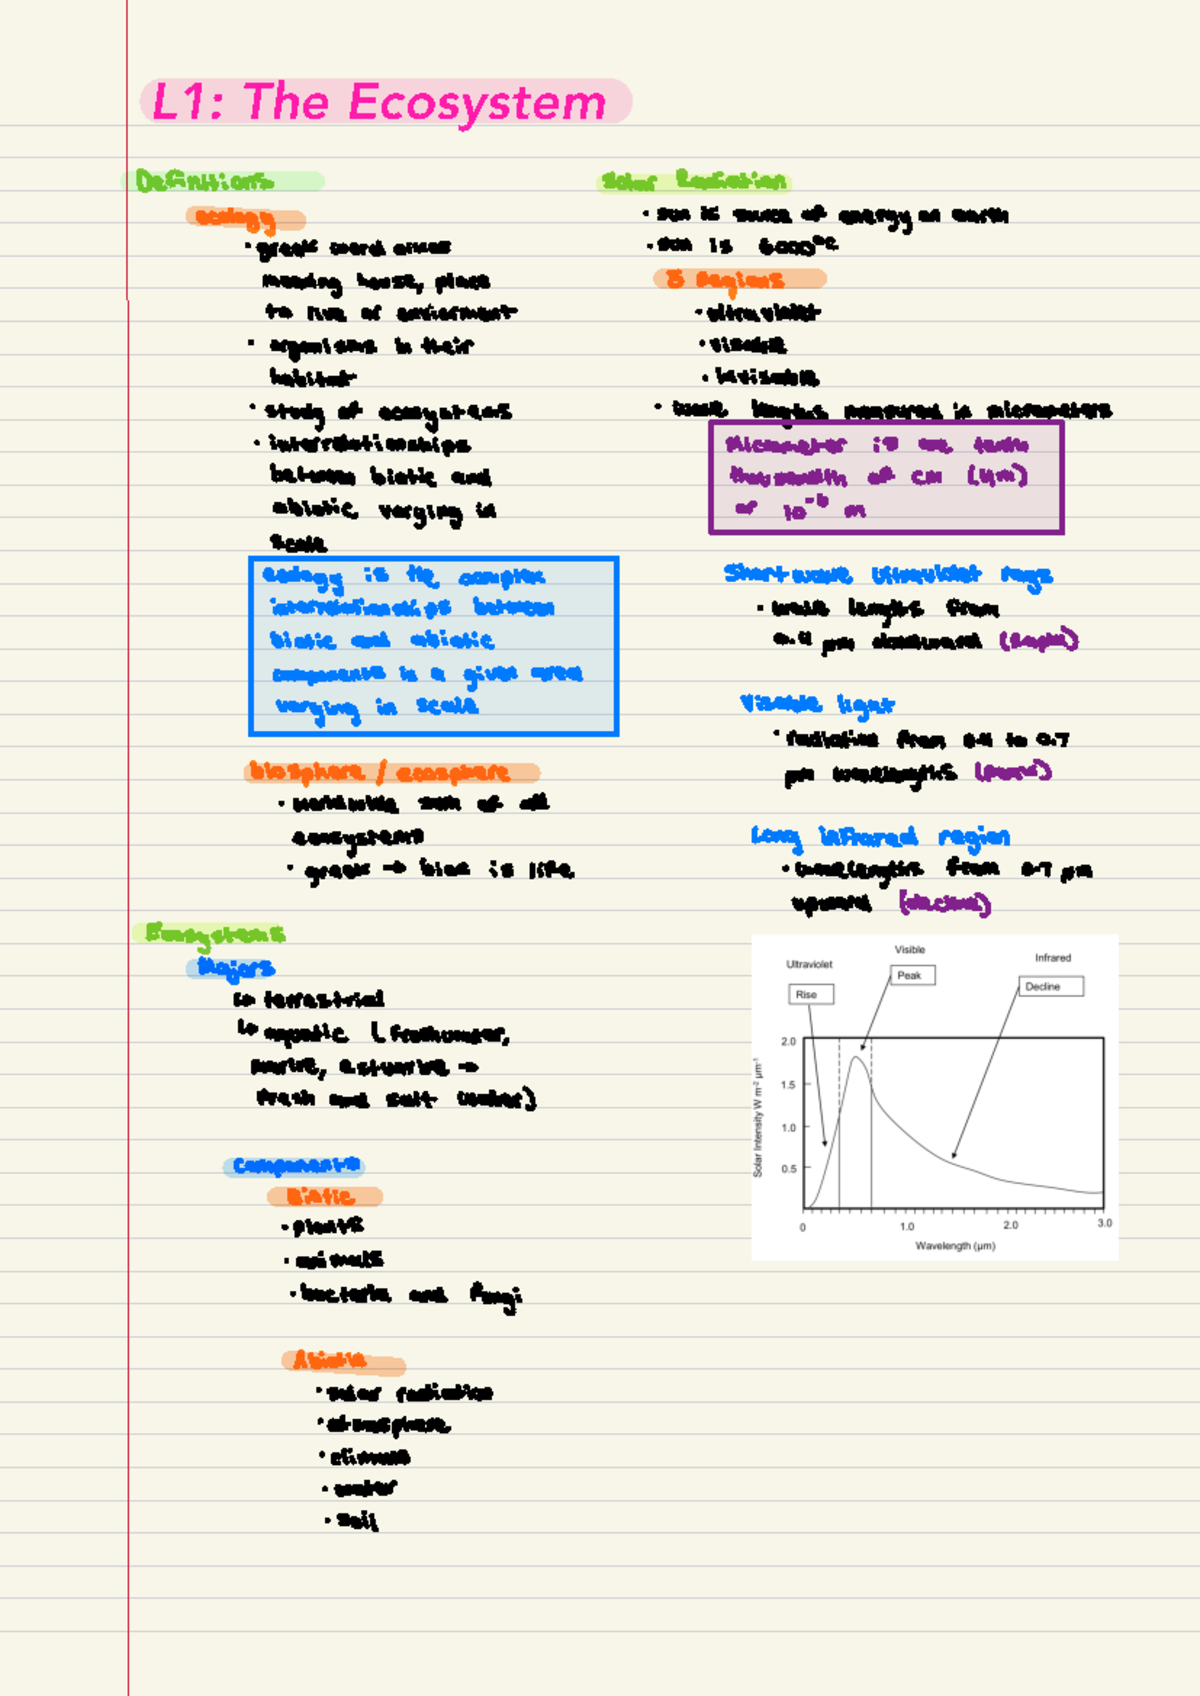 L1: The Ecosystem
Definitions
ecology
• greek word
meaning house, place
to live or
• organisms in their
habitat
• study of ecosystems
• interrelationships
between biotic and
abiotic varying in
scale
ecology is the complex
interrelationships between
biotic and abiotic
components in a given area
varying in scale
biosphere / ecosphere
• worldwide sum of all
ecosystems
• greek → is life
Ecosystems
Majors
↳ terrestrial
↳ aquatic (freshwater,
→
fresh and salt water)
Components
Biotic
• plants
• animals
• bacteria and fungi
Abiotic
• solar radiation
•
•
• water
• soil
Solar Radiation
• sun is source of energy on earth
• sun is 6000°C
3 Regions
• ultraviolet
•
•
• measured in micrometers
Micrometer is one
of cm (μm)
or 10⁻⁶ m
Short wave ultraviolet rays
• from
0.4 μm downward
light
• radiation from 0.4 to 0.7
μm wavelengths
Long infrared region
• wavelengths from 0.7 μm
upward (decline)
Visible
Ultraviolet
Infrared
Peak
Rise
Decline
2.0
1.5
1.0
0.5
Solar Intensity W m⁻² μm⁻¹
0 1.0 2.0 3.0
Wavelength (μm)